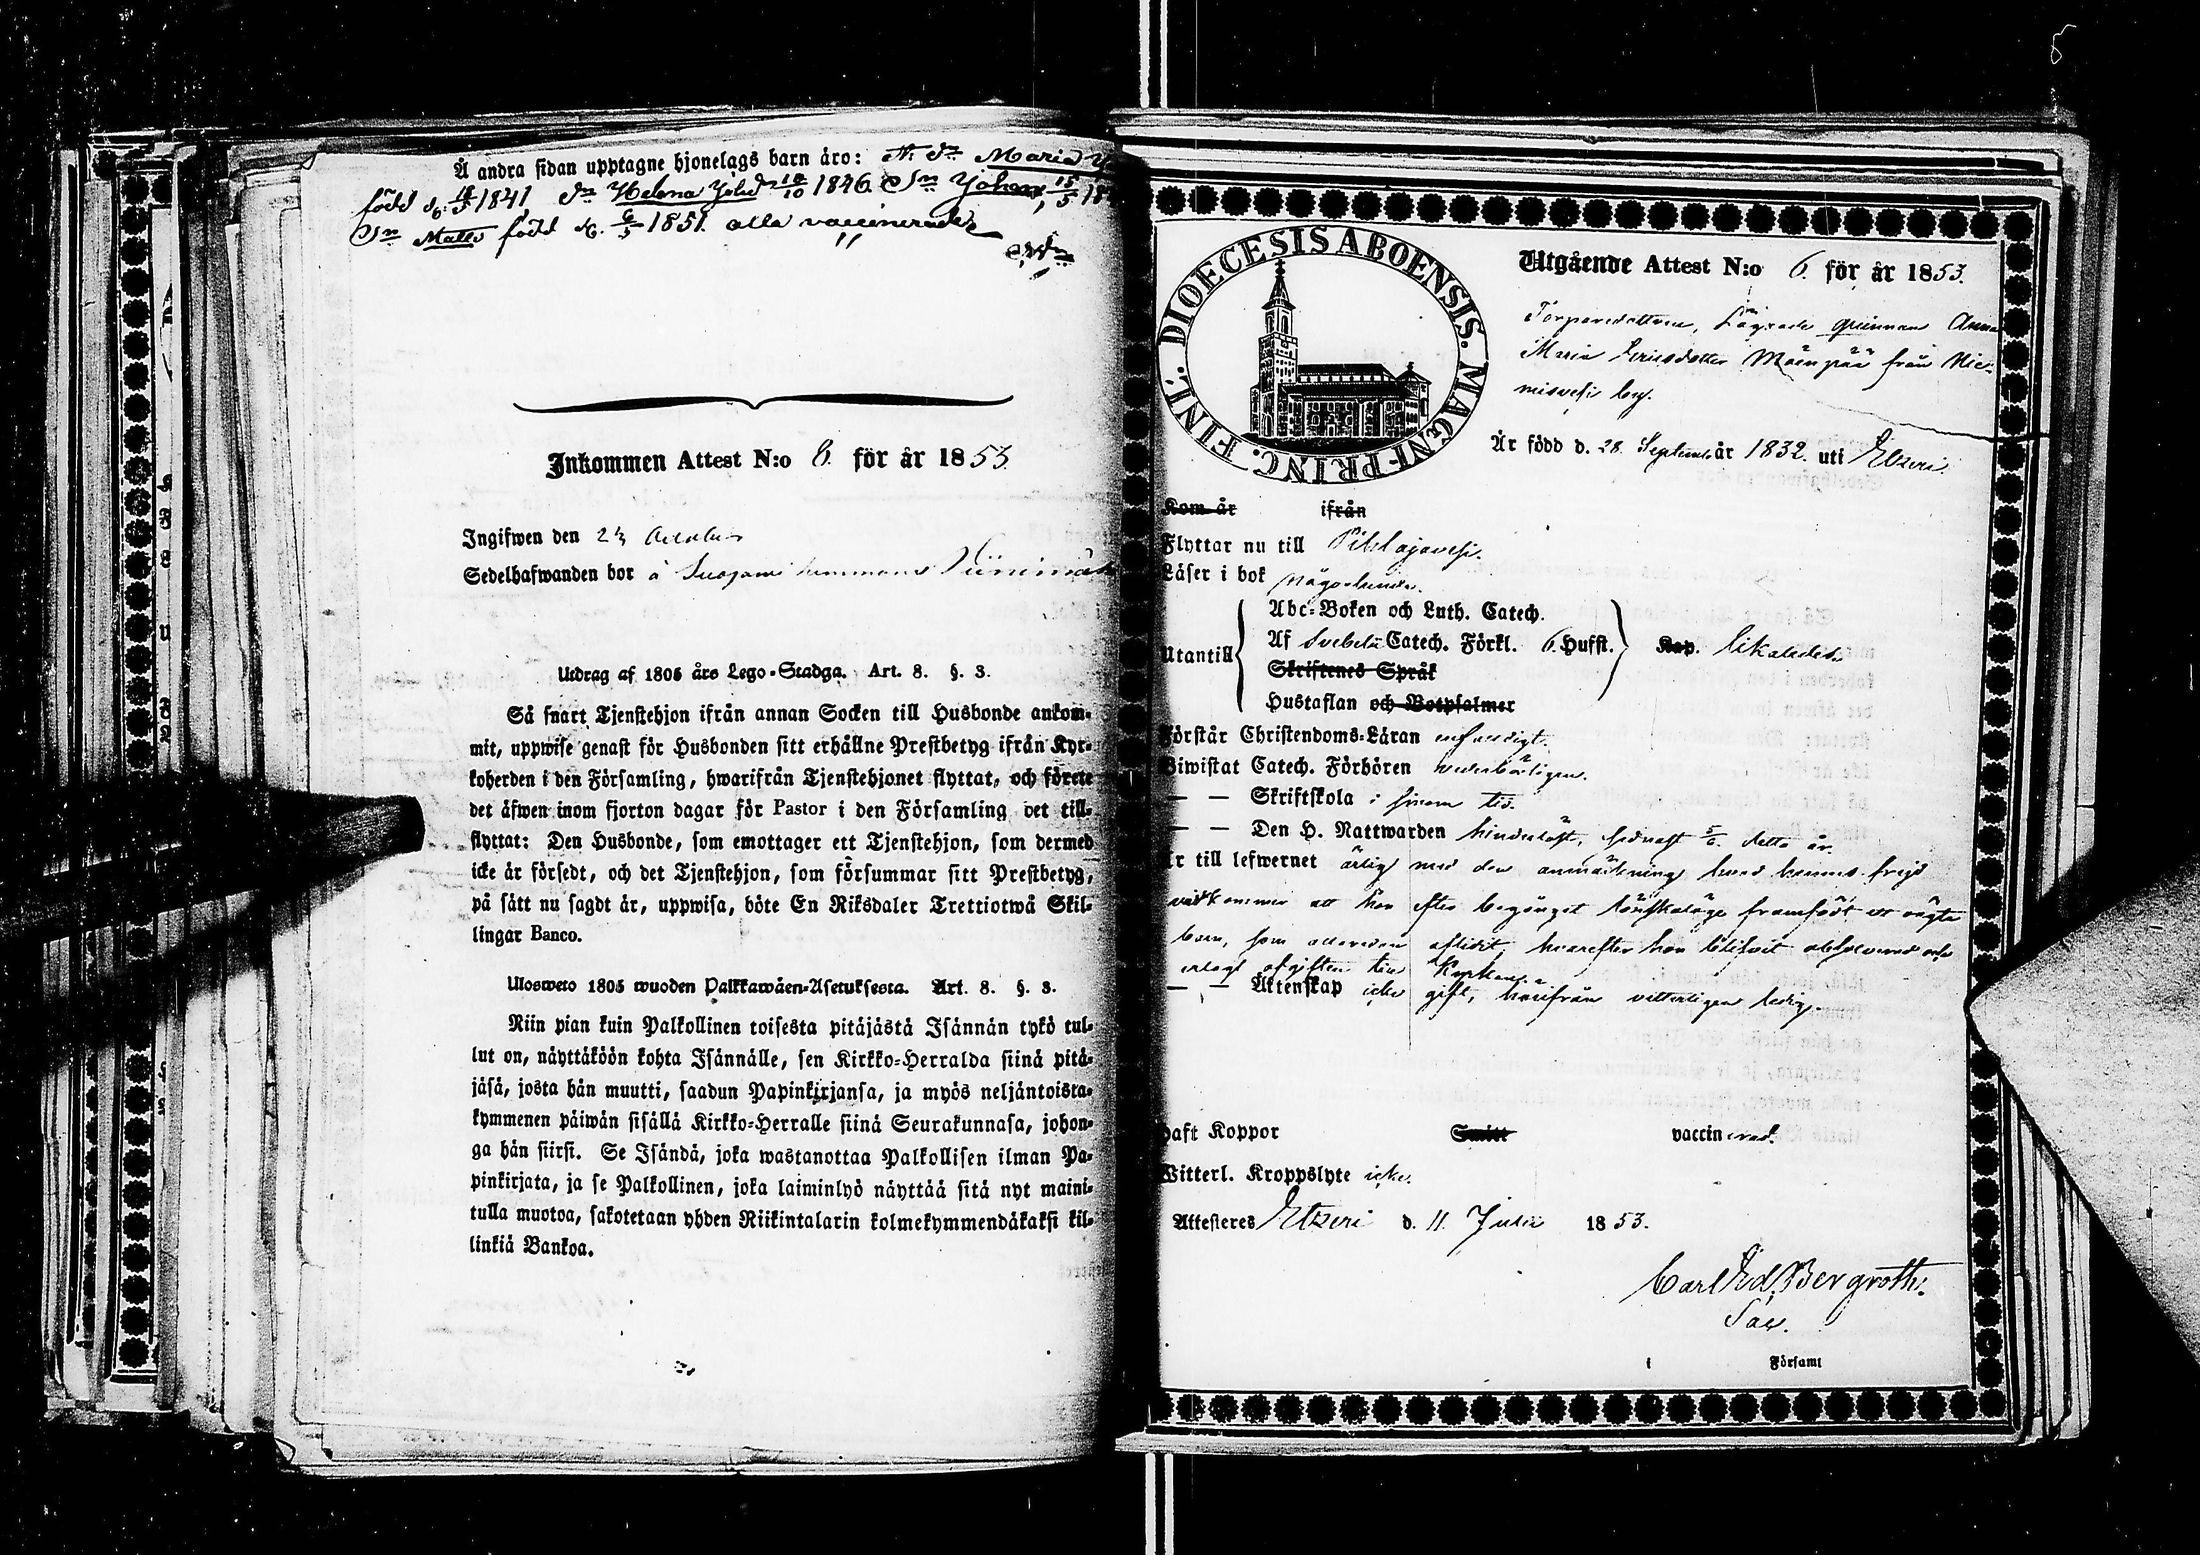 Å andra sidan upptagne hjonelags barn äro: Dr Maria
född d. 1841 Dr Helena 18/10 1846 Sn Johan, 15/5
Sn Matts född d. 6/5 1851. alla vaccinerade
Inkommen Attest N:o 6. för år 1853.
Ingifwen den 2
Sedelhafwanden bor å
Utdrag af 1805 års Lego-Stadga. Art. 8. §. 3.
Så snart Tjenstehjon ifrån annan Socken till Husbonde ankom-
mit, uppwise genast för Husbonden sitt erhållne Prestbetyg ifrån Kyr-
koherden i den Församling, hwarifrån Tjenstehjonet flyttat, och förete
det äfwen inom fjorton dagar för Pastor i den Församling det till-
flyttat: Den Husbonde, som emottager ett Tjenstehjon, som dermed
icke är försedt, och det Tjenstehjon, som försummar sitt Prestbetyg,
på sätt nu sagdt är, uppwisa, böte En Riksdaler Trettiotwå Skil-
lingar Banco.
Ulosweto 1805 wuoden Palkkawäen-Asetuksesta. Art. 8. §. 3.
Niin pian kuin Palkollinen toisesta pitäjästä Isännän tykö tul-
lut on, näyttäköön kohta Isännälle, sen Kirkko-Herralda siinä pitä-
jäsä, josta hän muutti, saadun Papinkirjansa, ja myös neljäntoista-
kymmenen päiwän sisällä Kirkko-Herralle siinä Seurakunnasa, johon-
ga hän siirsi. Se Isändä, joka wastanottaa Palkollisen ilman Pa-
pinkirjata, ja se Palkollinen, joka laiminlyö näyttää sitä nyt maini-
tulla muotoa, sakotetaan yhden Riikintalarin kolmekymmendäkaksi kil-
linkiä Bankoa.
5
DIOECESIS ABOENSIS. MAGNI-PRINC. FINL.
Utgående Attest N:o 6. för år 1853.
Torparedottren, Lägrade qwinnan Anna
Maria Ericsdotter Mäenpää från Nie-
misvesi by.
Är född d. 28. September år 1832. uti Etseri.
Kom år ifrån
Flyttar nu till Pihlajavesi.
Läser i bok någorlunda.
Utantill
Abc-Boken och Luth. Catech.
Af Svebelii Catech. Förkl. 6. Hufst. Kap. likaledes
Skriftenes Språk
Hustaflan och Botpsalmer
Förstår Christendoms-Läran enfaldigt.
Biwistat Catech. Förhören vederbörligen.
— — Skriftskola i sinom tid.
— — Den H. Nattwarden hinderlöst, sednast 5/6. detta år.
Är till lefwernet ärlig med den anmärkning hvad hennes frejd
vidkommer att hon efter begånget lönskaläge framfödt ett oägta
barn, som allaredan aflidit, hvarefter hon blifvit absolverad och
erlagt afgiften till Kyrkan.
— — Äktenskap icke gift, härifrån vitterligen ledig.
Haft Koppor Smitt vaccinerad.
Witterl. Kroppslyte icke.
Attesteres Etseri d. 11. Julii 1853.
Carl Ed. Bergroth.
Sac.
Församl